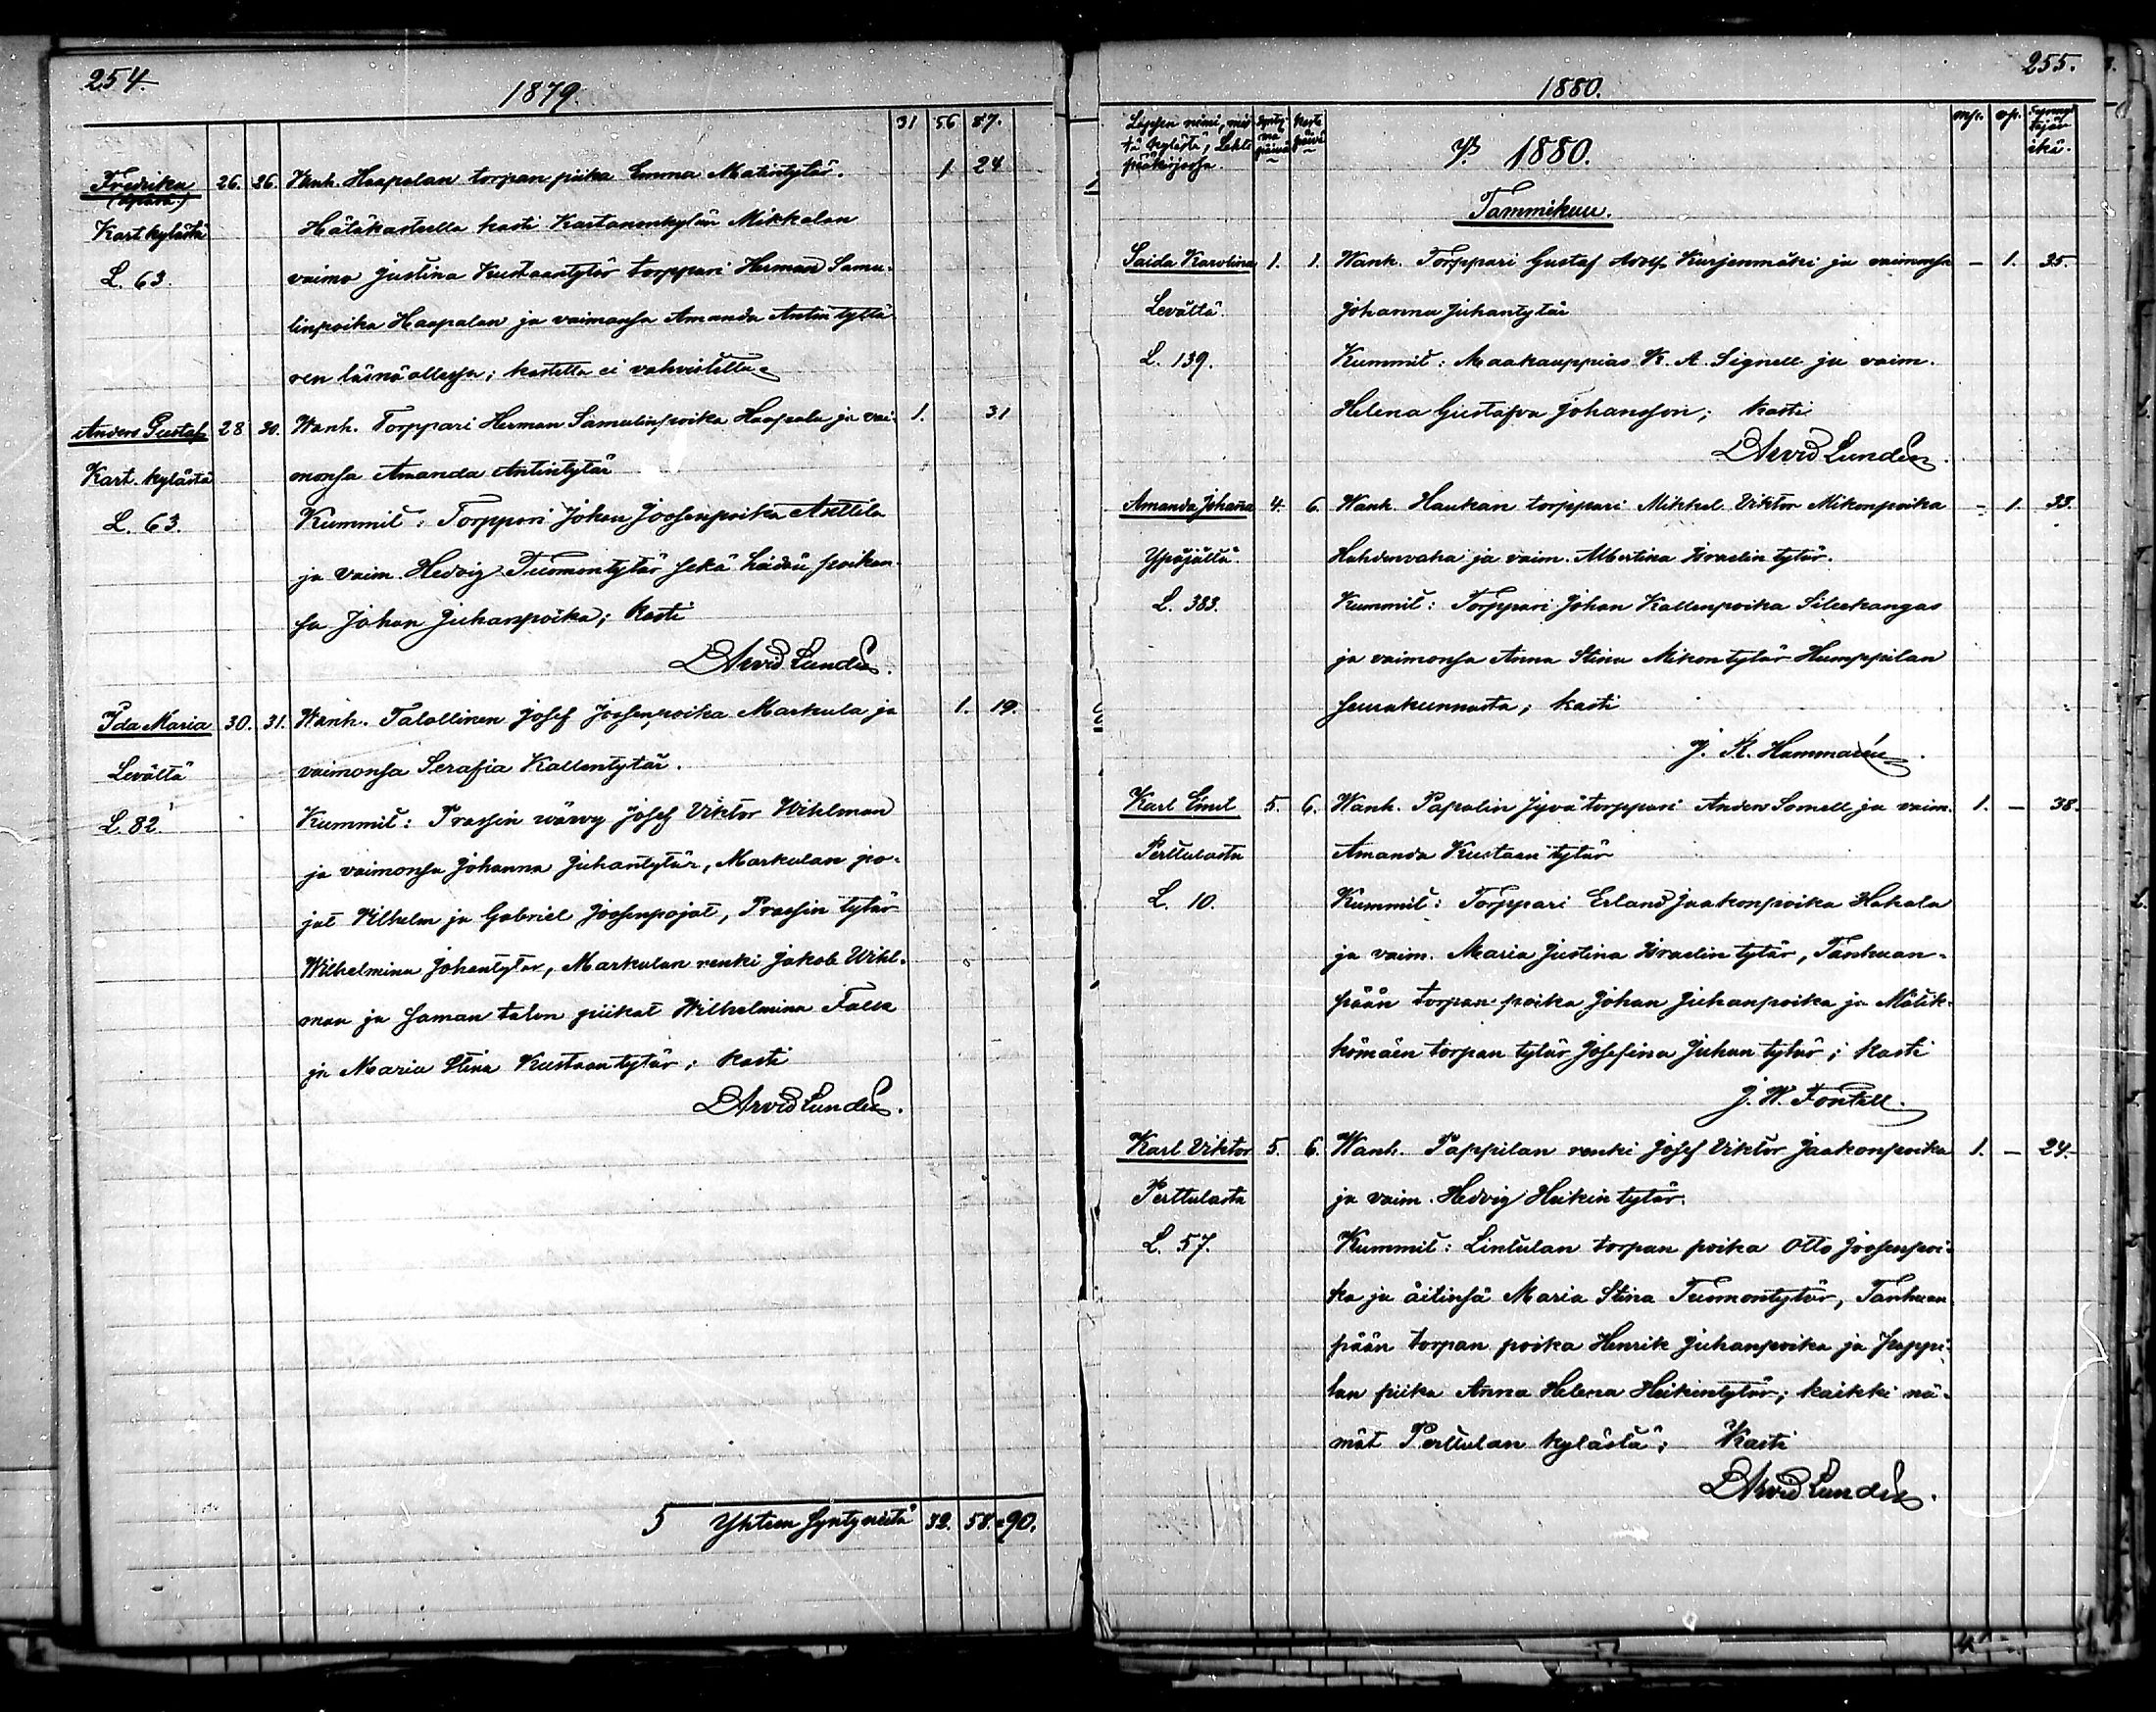 254.
1879.
31 56 87.
Fredrika 26. 26. Wanh. Haapalan torpan piika Emma Matintytär. 1 24
Kart. kylästä Hätäkasteella kasti Kartanonkylän Mikkolan
L. 63. vaimo Justina Kustaantytär torppari Herman Samu-
linpoika Haapalan ja vaimonsa Amanda Antin tyttä-
ren läsnäollessa; kastetta ei vahvistettu.
Anders Gustaf 28 30. Wanh. Torppari Herman Samulinpoika Haapala ja vai- 1. 31
Kart. kylästä monsa Amanda Antintytär
L. 63. Kummit: Torppari Johan Joosenpoika Anttila
ja vaim. Hedvig Tuomontytär sekä heidän poikan-
sa Johan Juhanpoika; Kasti
Arvid Lundén.
Ida Maria 30. 31. Wanh. Talollinen Josef Joosenpoika Markula ja 1. 19.
Levältä vaimonsa Serafia Kallentytär.
L. 82 Kummit: Prassin wävvy Josef Viktor Wihlman
ja vaimonsa Johanna Juhantytär, Markulan po-
jat Vilhelm ja Gabriel Joosenpojat, Prassin tytär
Wilhelmina Johantytär, Markulan renki Jakob Wihl-
man ja saman talon piikat Wilhelmina Falck
ja Maria Stina Kustaantytär; kasti
Arvid Lundén.
5 Yhteen syntyneitä 32. 58. = 90.
255.
1880.
Lapsen nimi, mis- Synty- Kaste mp. vp. Synnyt-
tä kylästä, Lehti mä päivä täjän
pääkirjassa. päivä ikä.
1880.
Tammikuu.
Saida Karolina 1. 1. Wanh. Torppari Gustaf Adolf Kurjenmäki ja vaimonsa – 1. 35.
Levältä. Johanna Juhantytär
L. 139. Kummit: Maakauppias K. A. Signell ja vaim.
Helena Gustafva Johansson; kasti
Arvid Lundén.
Amanda Johana 4. 6. Wanh. Haukan torppari Mikkel Viktor Mikonpoika – 1. 33.
Ypäjältä. Hahdenvaha ja vaim. Albertina Israelin tytär.
L. 383. Kummit: Torppari Johan Kallenpoika Sileekangas
ja vaimonsa Anna Stina Mikontytär Humppilan
seurakunnasta; kasti
J. K. Hammarén.
Karl Emil 5. 6. Wanh. Papalin Jyvätorppari Anders Somell ja vaim. 1. – 38.
Perttulasta Amanda Kustaan tytär
L. 10. Kummit: Torppari Erland Jaakonpoika Hakala
ja vaim. Maria Justina Israelin tytär, Tanhuan-
pään torpan poika Johan Juhanpoika ja Mätik-
kömäen torpan tytär Josefina Juhan tytär; kasti
J. W. Fontell.
Karl Viktor 5. 6. Wanh. Pappilan renki Josef Viktor Jaakonpoika 1. – 24.
Perttulasta ja vaim. Hedvig Heikin tytär.
L. 57. Kummit: Lintulan torpan poika Otto Joosenpoi-
ka ja äitinsä Maria Stina Tuomontytär, Tanhuan-
pään torpan poika Henrik Juhanpoika ja Pappi-
lan piika Anna Helena Heikintytär; kaikki nä-
mät Perttulan kylästä; Kasti
Arvid Lundén.